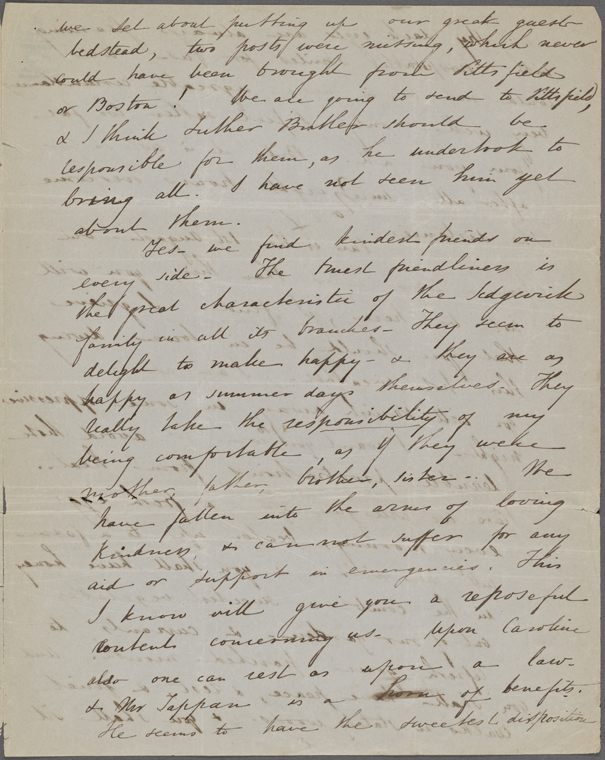 we set about putting up our great guest
bedstead, two posts were missing, which never
could have been brought from Pittsfield
or Boston! We are going to send to Pittsfield,
& I think Luther Butler should be
responsible for them, as he undertook to
bring all. I have not seen him yet
about them.
Yes - we find kindest friends on
every side - The truest friendliness is
the great characteristic of the Sedgwick
family in all its branches - They seem to
delight to make happy - & they are as
happy as summer days themselves. They
really take the responsibility of my
being comfortable, as if they were
mother, father, brother, sister - We
have fallen into the arms of loving
kindness, & cannot suffer for any
aid or support in emergencies. This
I know will give you a reposeful
content concerning us - upon Caroline
also one can rest as upon a law -
& Mr Tappan is a horn of benefits.
He seems to have the sweetest disposition